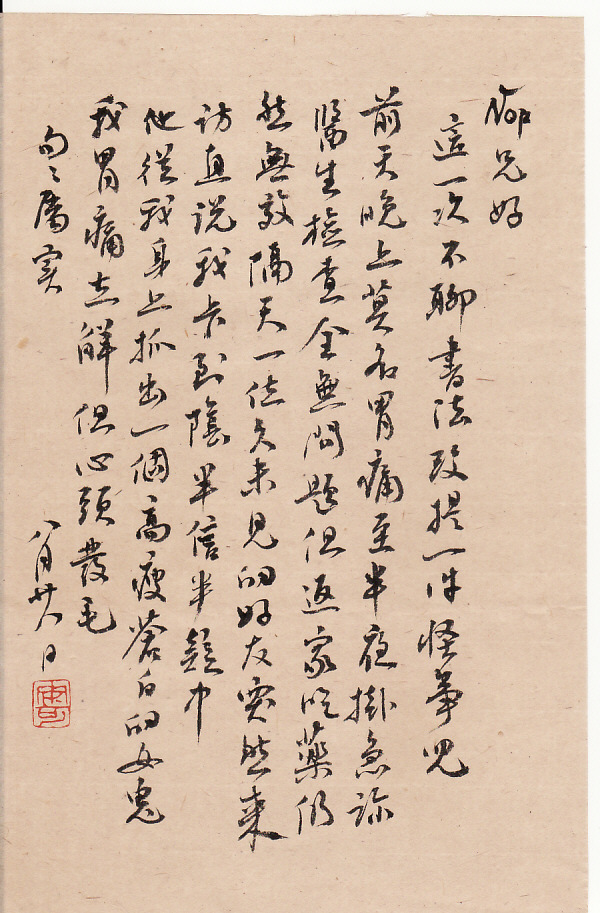 兄好
這一次不聊書法改提一件怪事兒
前天晚上莫名胃痛至半夜掛急診
醫生檢查全無問題但返家吃藥仍
然無效隔天一位久未見的好友突然來
訪直說我卡到陰半信半疑中
他從我身上抓出一個高瘦蒼白的女鬼
我胃痛立解但心頭發毛
句々屬實
八月廿八日